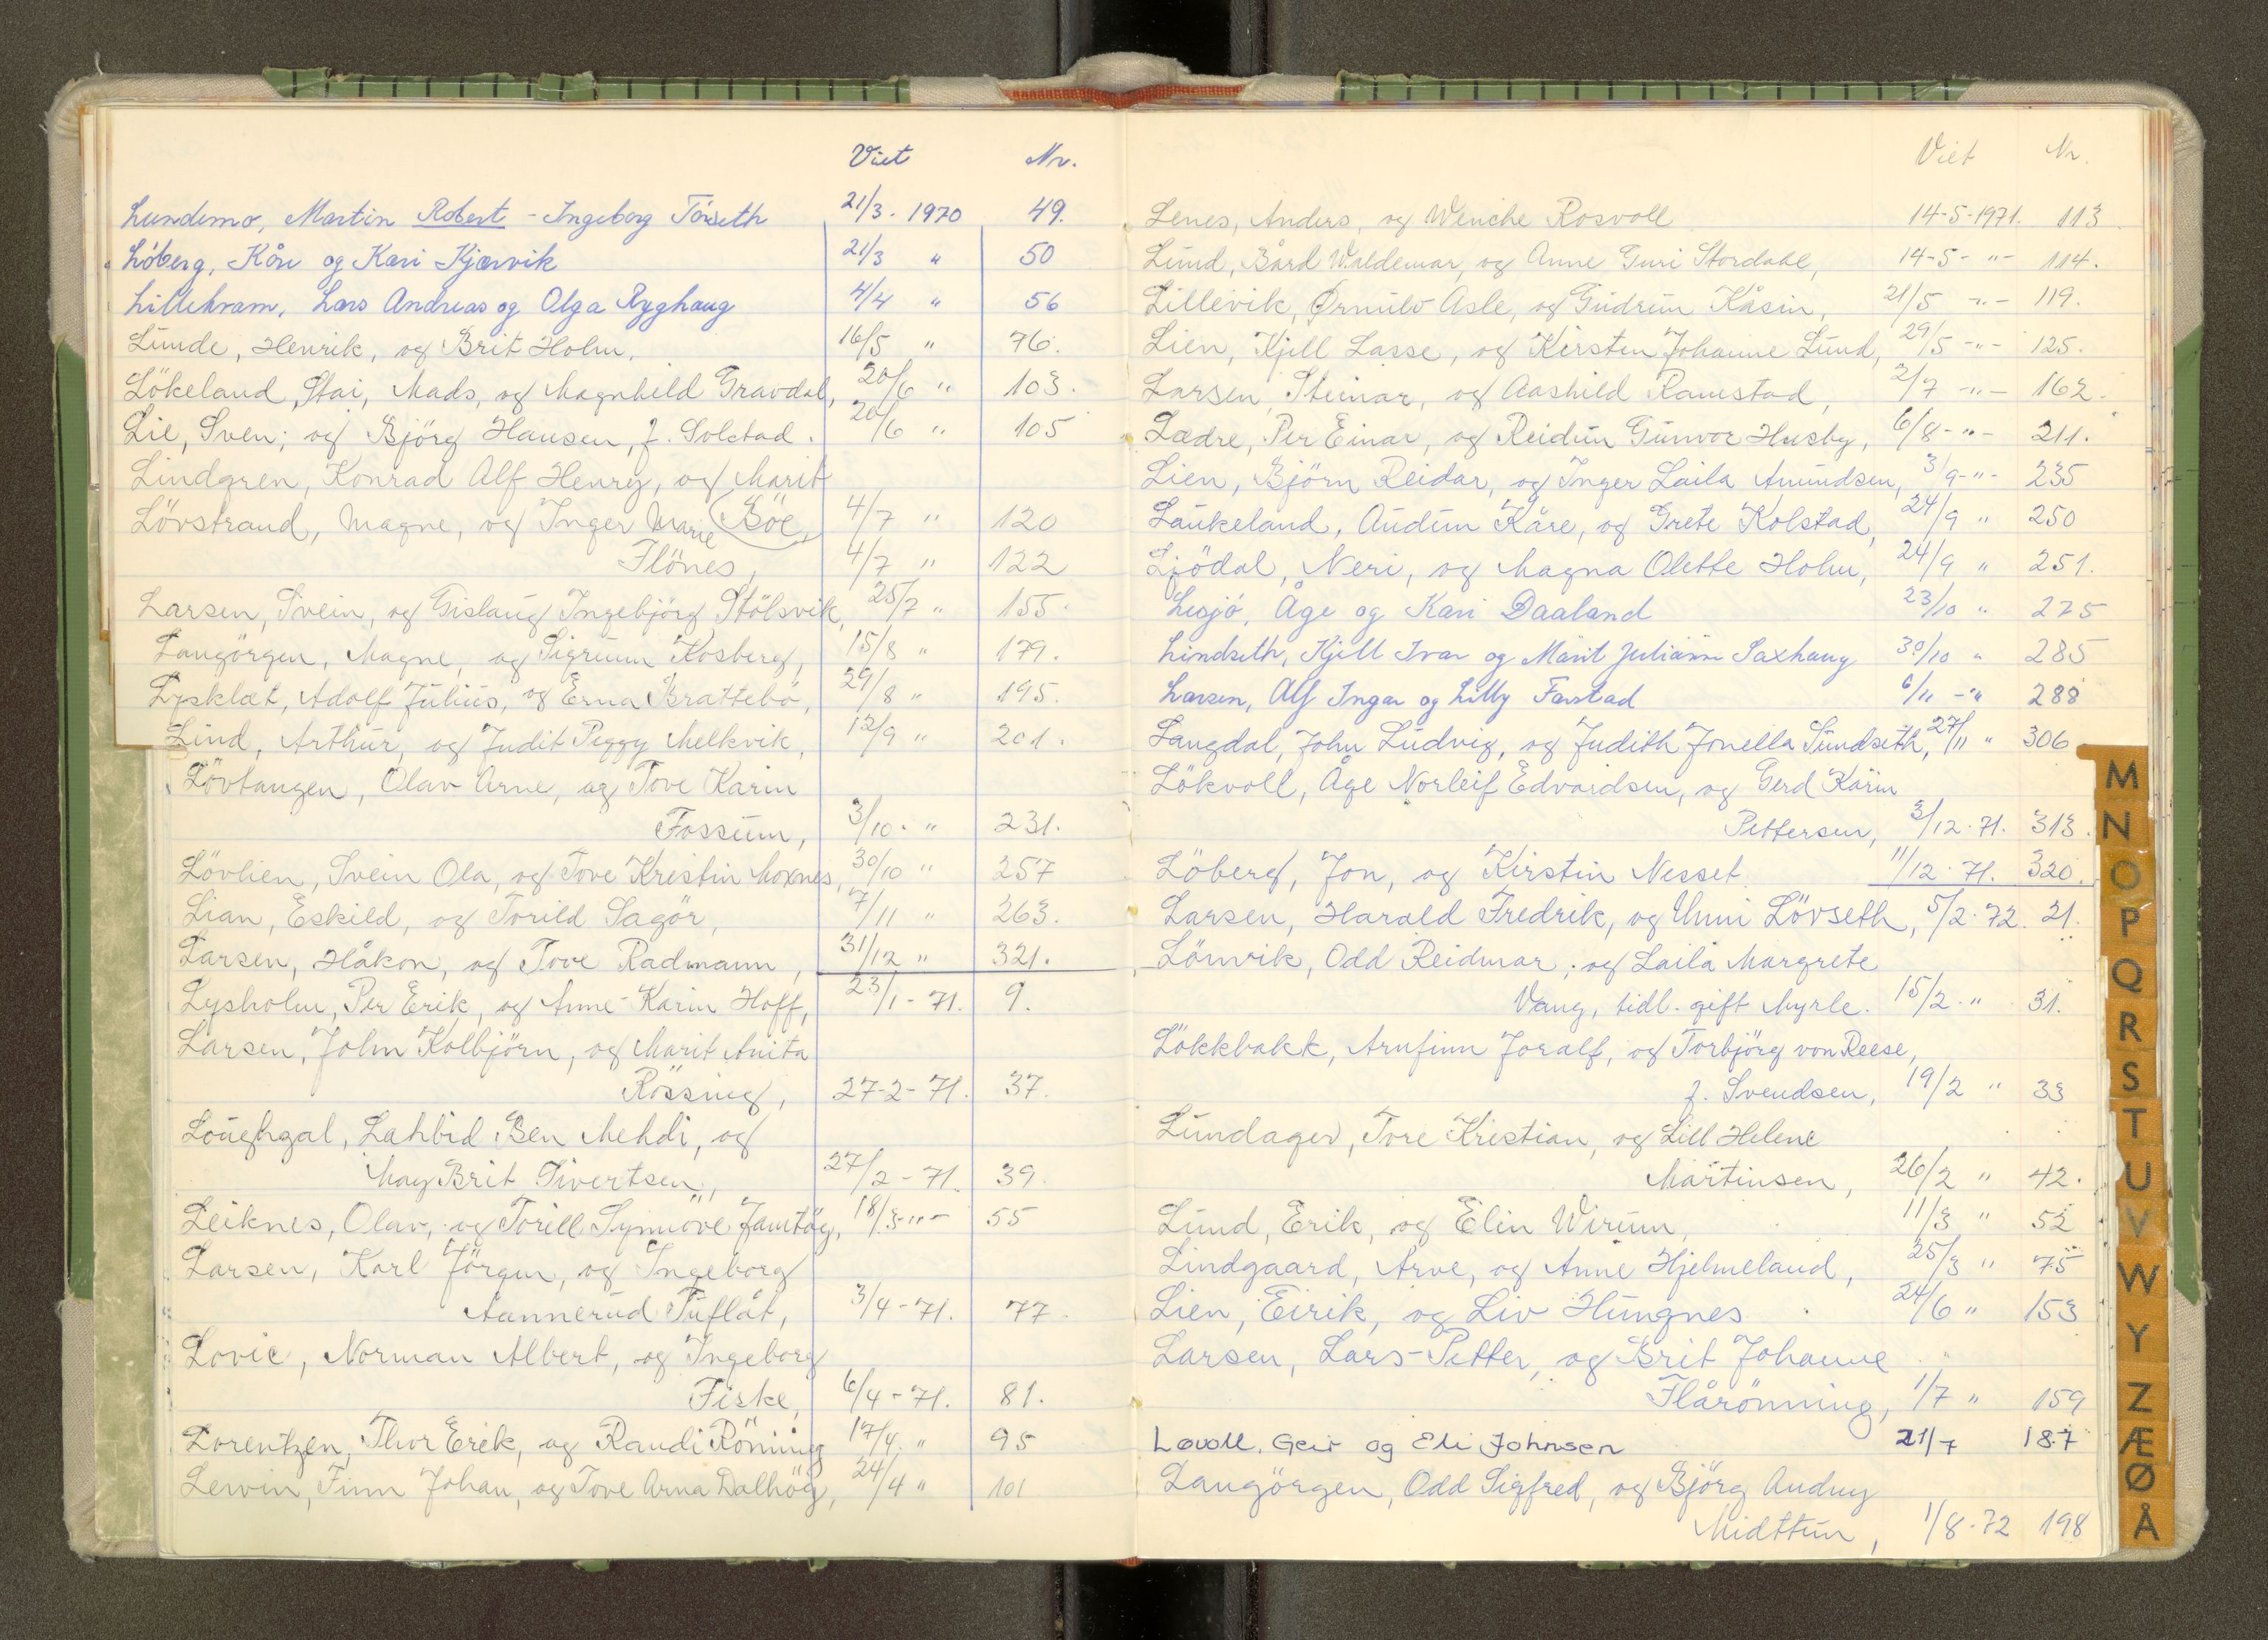 Viet Nr.
Lundemo, Martin Robert - Ingeborg Törseth 21/3. 1970 49.
Löberg, Kåre og Kari Kjærvik 21/3 " 50
Lillekvam, Lars Andreas og Olga Ryghaug 4/4 " 56
Lunde, Henrik, og Brit Holm, 16/5 " 76.
Lökeland, Stai, Mads, og Magnhild Gravdal, 20/6 " 103.
Lie, Sven; og Björg Hansen, f. Solstad. 20/6 " 105
Lindgren, Konrad Alf Henry, og Marit
Lövstrand, Magne, og Inger Marie Böe, 4/7 " 120
Flönes, 4/7 " 122
Larsen, Svein, og Gislaug Ingebjörg Stölsvik, 25/7 " 155.
Langörgen, Magne, og Sigrunn Kosberg, 15/8 " 179.
Lysklæt, Adolf Julius, og Erna Brattebö, 29/8 " 195.
Lind, Arthur, og Judit Peggy Melkvik, 12/9 " 201.
Lövtangen, Olav Arne, og Tove Karin
Fossum, 3/10. " 231.
Lövlien, Svein Ola, og Tove Kristin Moxnes, 30/10 " 257
Lian, Eskild, og Torild Sagör, 7/11 " 263.
Larsen, Håkon, og Tove Radmann, 31/12 " 321.
Lysholm, Per Erik, og Anne-Karin Hoff, 23/1 - 71. 9.
Larsen, John Kolbjörn, og Marit Anita
Rössing, 27-2-71. 37.
Loughzal, Lahbid Ben Mehdi, og
May Brit Sivertsen, 27/2 - 71. 39.
Leiknes, Olav, og Torill Synnöve Jamtöy, 18/3 -"- 55
Larsen, Karl Jörgen, og Ingeborg
Aannerud Tuflåt, 3/4 - 71. 77.
Lovie, Norman Albert, og Ingeborg
Fiske, 6/4 - 71. 81.
Lorentzen, Thor Erik, og Randi Rönning 17/4. " 95
Lewin, Finn Johan, og Tove Arna Dalhög, 24/4 " 101
Viet Nr.
Lenes, Anders, og Wenche Rosvoll 14-5-1971. 113
Lund, Bård Waldemar, og Anne Guri Stordahl, 14-5- "- 114.
Lillevik, Ørnulv Asle, og Gudrun Kåsin, 21/5 -"- 119.
Lien, Kjell Lasse, og Kirsten Johanne Lund, 29/5 -"- 125.
Larsen, Steinar, og Aashild Ramstad, 2/7 -"- 162.
Lædre, Per Einar, og Reidun Gunvor Husby, 6/8 -"- 211.
Lien, Björn Reidar, og Inger Laila Amundsen, 3/9 -"- 235
Laukeland, Audun Kåre, og Grete Kolstad, 24/9 " 250
Ljödal, Neri, og Magna Olette Holm, 24/9 " 251.
Lesjö, Åge og Kari Daaland 23/10 " 275
Lindseth, Kjell Ivar og Marit Julianne Saxhaug 30/10 " 285
Larsen, Alf Ingar og Lilly Farstad 6/11 -" 288
Langdal, John Ludvig, og Judith Jonella Sundseth, 27/11 " 306
Lökvoll, Åge Norleif Edvardsen, og Gerd Karin
Pettersen, 3/12. 71. 313.
Löberg, Jon, og Kirstin Nesset 11/12. 71. 320.
Larsen, Harald Fredrik, og Unni Lövseth, 5/2. 72. 21.
Lömvik, Odd Reidmar; og Laila Margrete
Vang, tidl. gift Myrle. 15/2. " 31.
Lökkbakk, Arnfinn Joralf, og Torbjörg von Reese,
f. Svendsen, 19/2 " 33
Lundager, Tore Kristian, og Lill Helene
Martinsen, 26/2 " 42.
Lund, Erik, og Elin Wirum, 11/3 " 52
Lindgaard, Arve, og Anne Hjelmeland, 25/3 " 75
Lien, Eirik, og Liv Hungnes 24/6 " 153
Larsen, Lars-Petter, og Brit Johanne
Flårönning, 1/7 " 159
Løvoll, Geir og Eli Johnsen 21/7 187
Langörgen, Odd Sigfred, og Björg Audny
Midttun, 1/8. 72 198
M
N
O
P
Q
R
S
T
U
V
W
Y
Z
Æ
Ø
Å